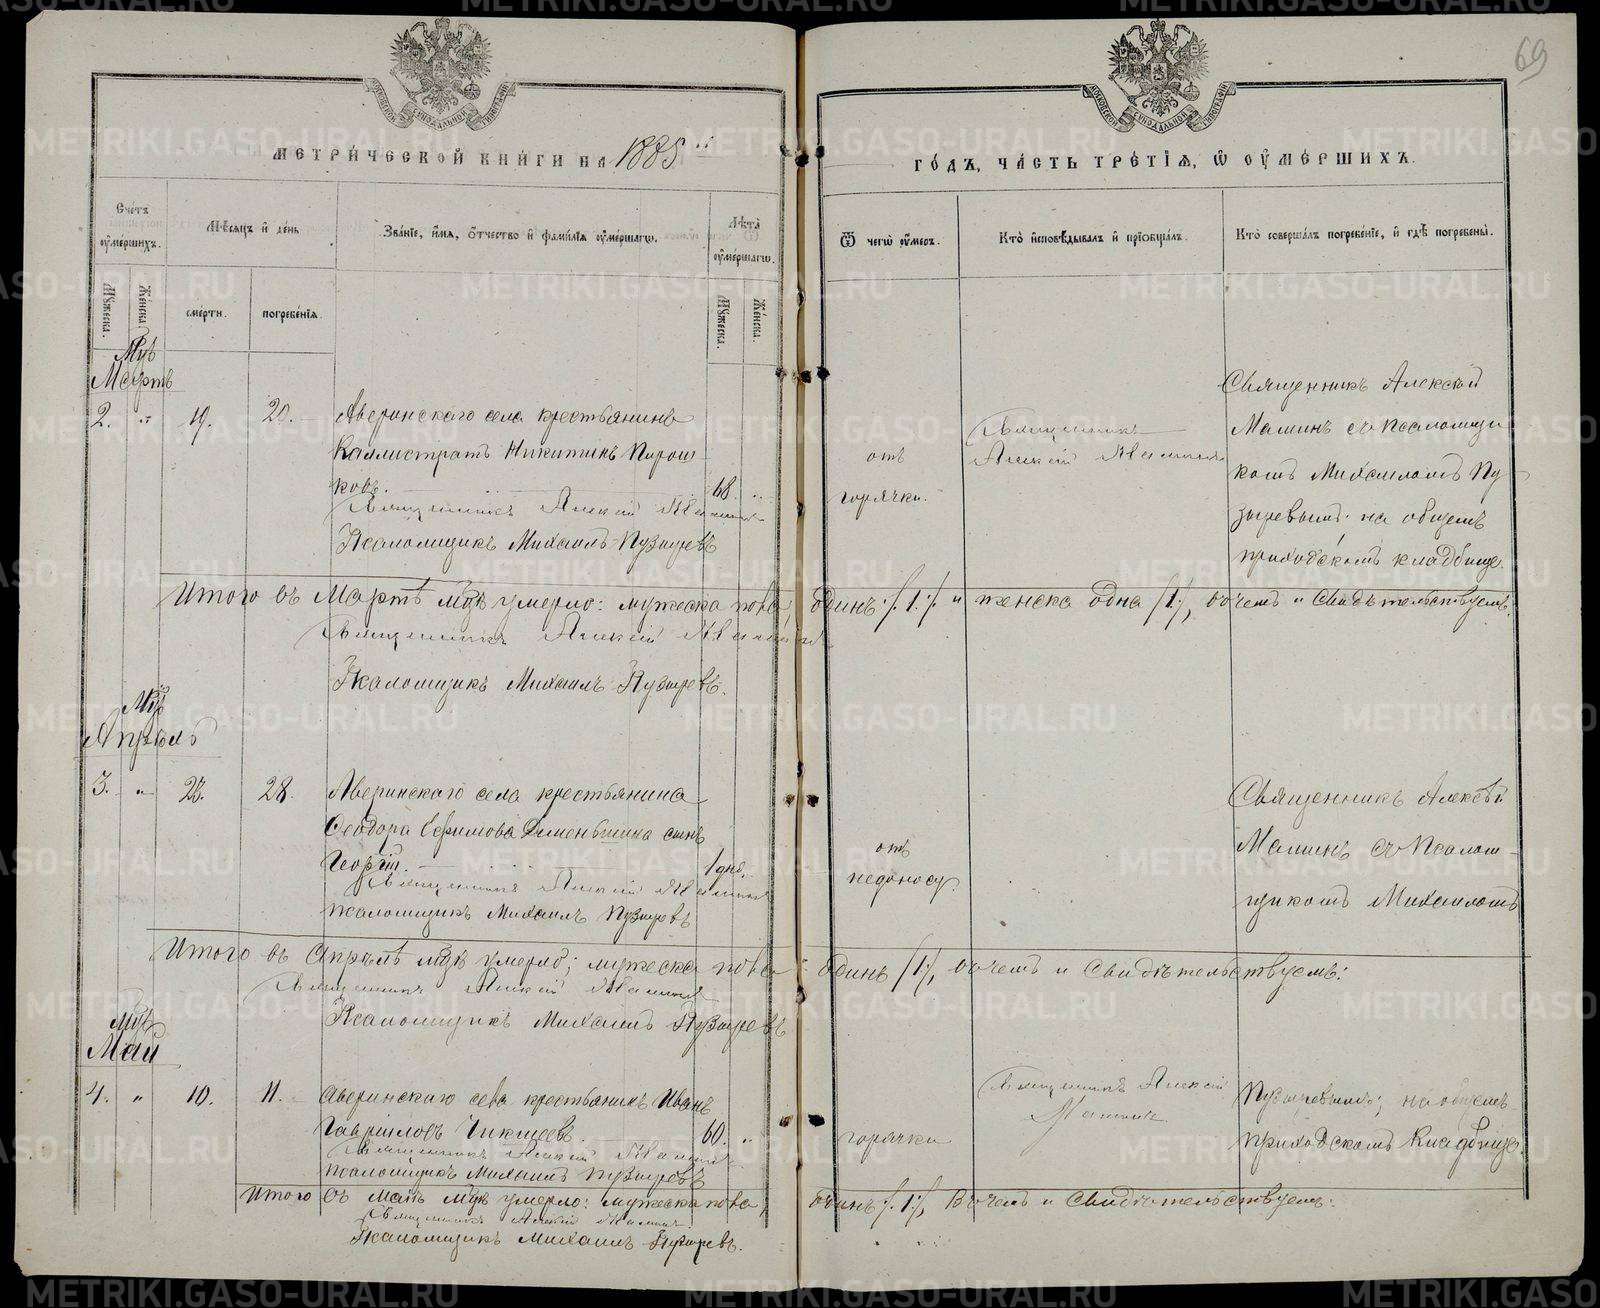 69
МЕТРИ́ЧЕСКОЙ КНИ́ГИ НА 1885 ГО́ДЪ, ЧА́СТЬ ТРЕ́ТІѦ, Ѡ ОУМЕ́РШИХЪ.
Сче́тъ оуме́ршихъ.
Мѣ́сяцъ и де́нь
Зва́ніе, и́мя, ѻ́тчество и фами́лія оуме́ршагѡ.
Лѣта̀ оуме́ршагѡ.
Ѿ чегѡ̀ оу́меръ.
Кто̀ исповѣ́дывалъ и пріѡбща́лъ.
Кто̀ соверша́лъ погребе́ніе, и гдѣ̀ погребены̀.
Мꙋ́жеска.
Же́нска.
сме́рти.
погребе́нія.
Мꙋ́жеска.
Же́нска.
Мцъ
Мартъ
2. " 19. 20. Аверинскаго села крестьянинъ
Каллистратъ Никитинъ Порош
ковъ. 68. "
Священникъ Алексій Мамин
Псаломщикъ Михаилъ Пузыревъ
отъ
горячки.
Священникъ
Алексій Маминъ
Священникъ Алексѣй
Маминъ съ Псаломщи
комъ Михаиломъ Пу
зыревымъ на общемъ
приходскомъ кладбище.
Итого въ Мартѣ мцѣ умерло: мужеска пола одинъ /.1./ и женска одна /1/, в чемъ и свидѣтельствуемъ.
Священникъ Алексій Маминъ
Псаломщикъ Михаилъ Пузыревъ.
Мцъ
Апрѣль
3. " 28. Аверинскаго села крестьянина
Ѳеодора Ефимова сынъ
Георгій. 1 дня.
Священникъ Алексій Маминъ
Псаломщикъ Михаилъ Пузыревъ
отъ
недоносу.
Священникъ Алексѣй
Маминъ съ Псалом-
щикомъ Михаиломъ
Итого въ Апрѣлѣ мцѣ умерло; мужеска пола одинъ /1/, в чемъ и свидѣтельствуемъ:
Священникъ Алексій Маминъ
Псаломщикъ Михаилъ Пузыревъ
Мцъ
Май
4. " 10. 11. Аверинскаго села крестьянинъ Иванъ
Гавриловъ 60. "
Священникъ Алексій Маминъ
Псаломщикъ Михаилъ Пузыревъ
горячки
Священникъ Алексій
Маминъ
Пузыревымъ; на общемъ
приходскомъ кладбище.
Итого въ Маѣ мцѣ умерло: мужеска пола, одинъ /.1./, в чемъ и свидѣтельствуемъ:
Священникъ Алексій Маминъ.
Псаломщикъ Михаилъ Пузыревъ.
METRIKI.GASO-URAL.RU